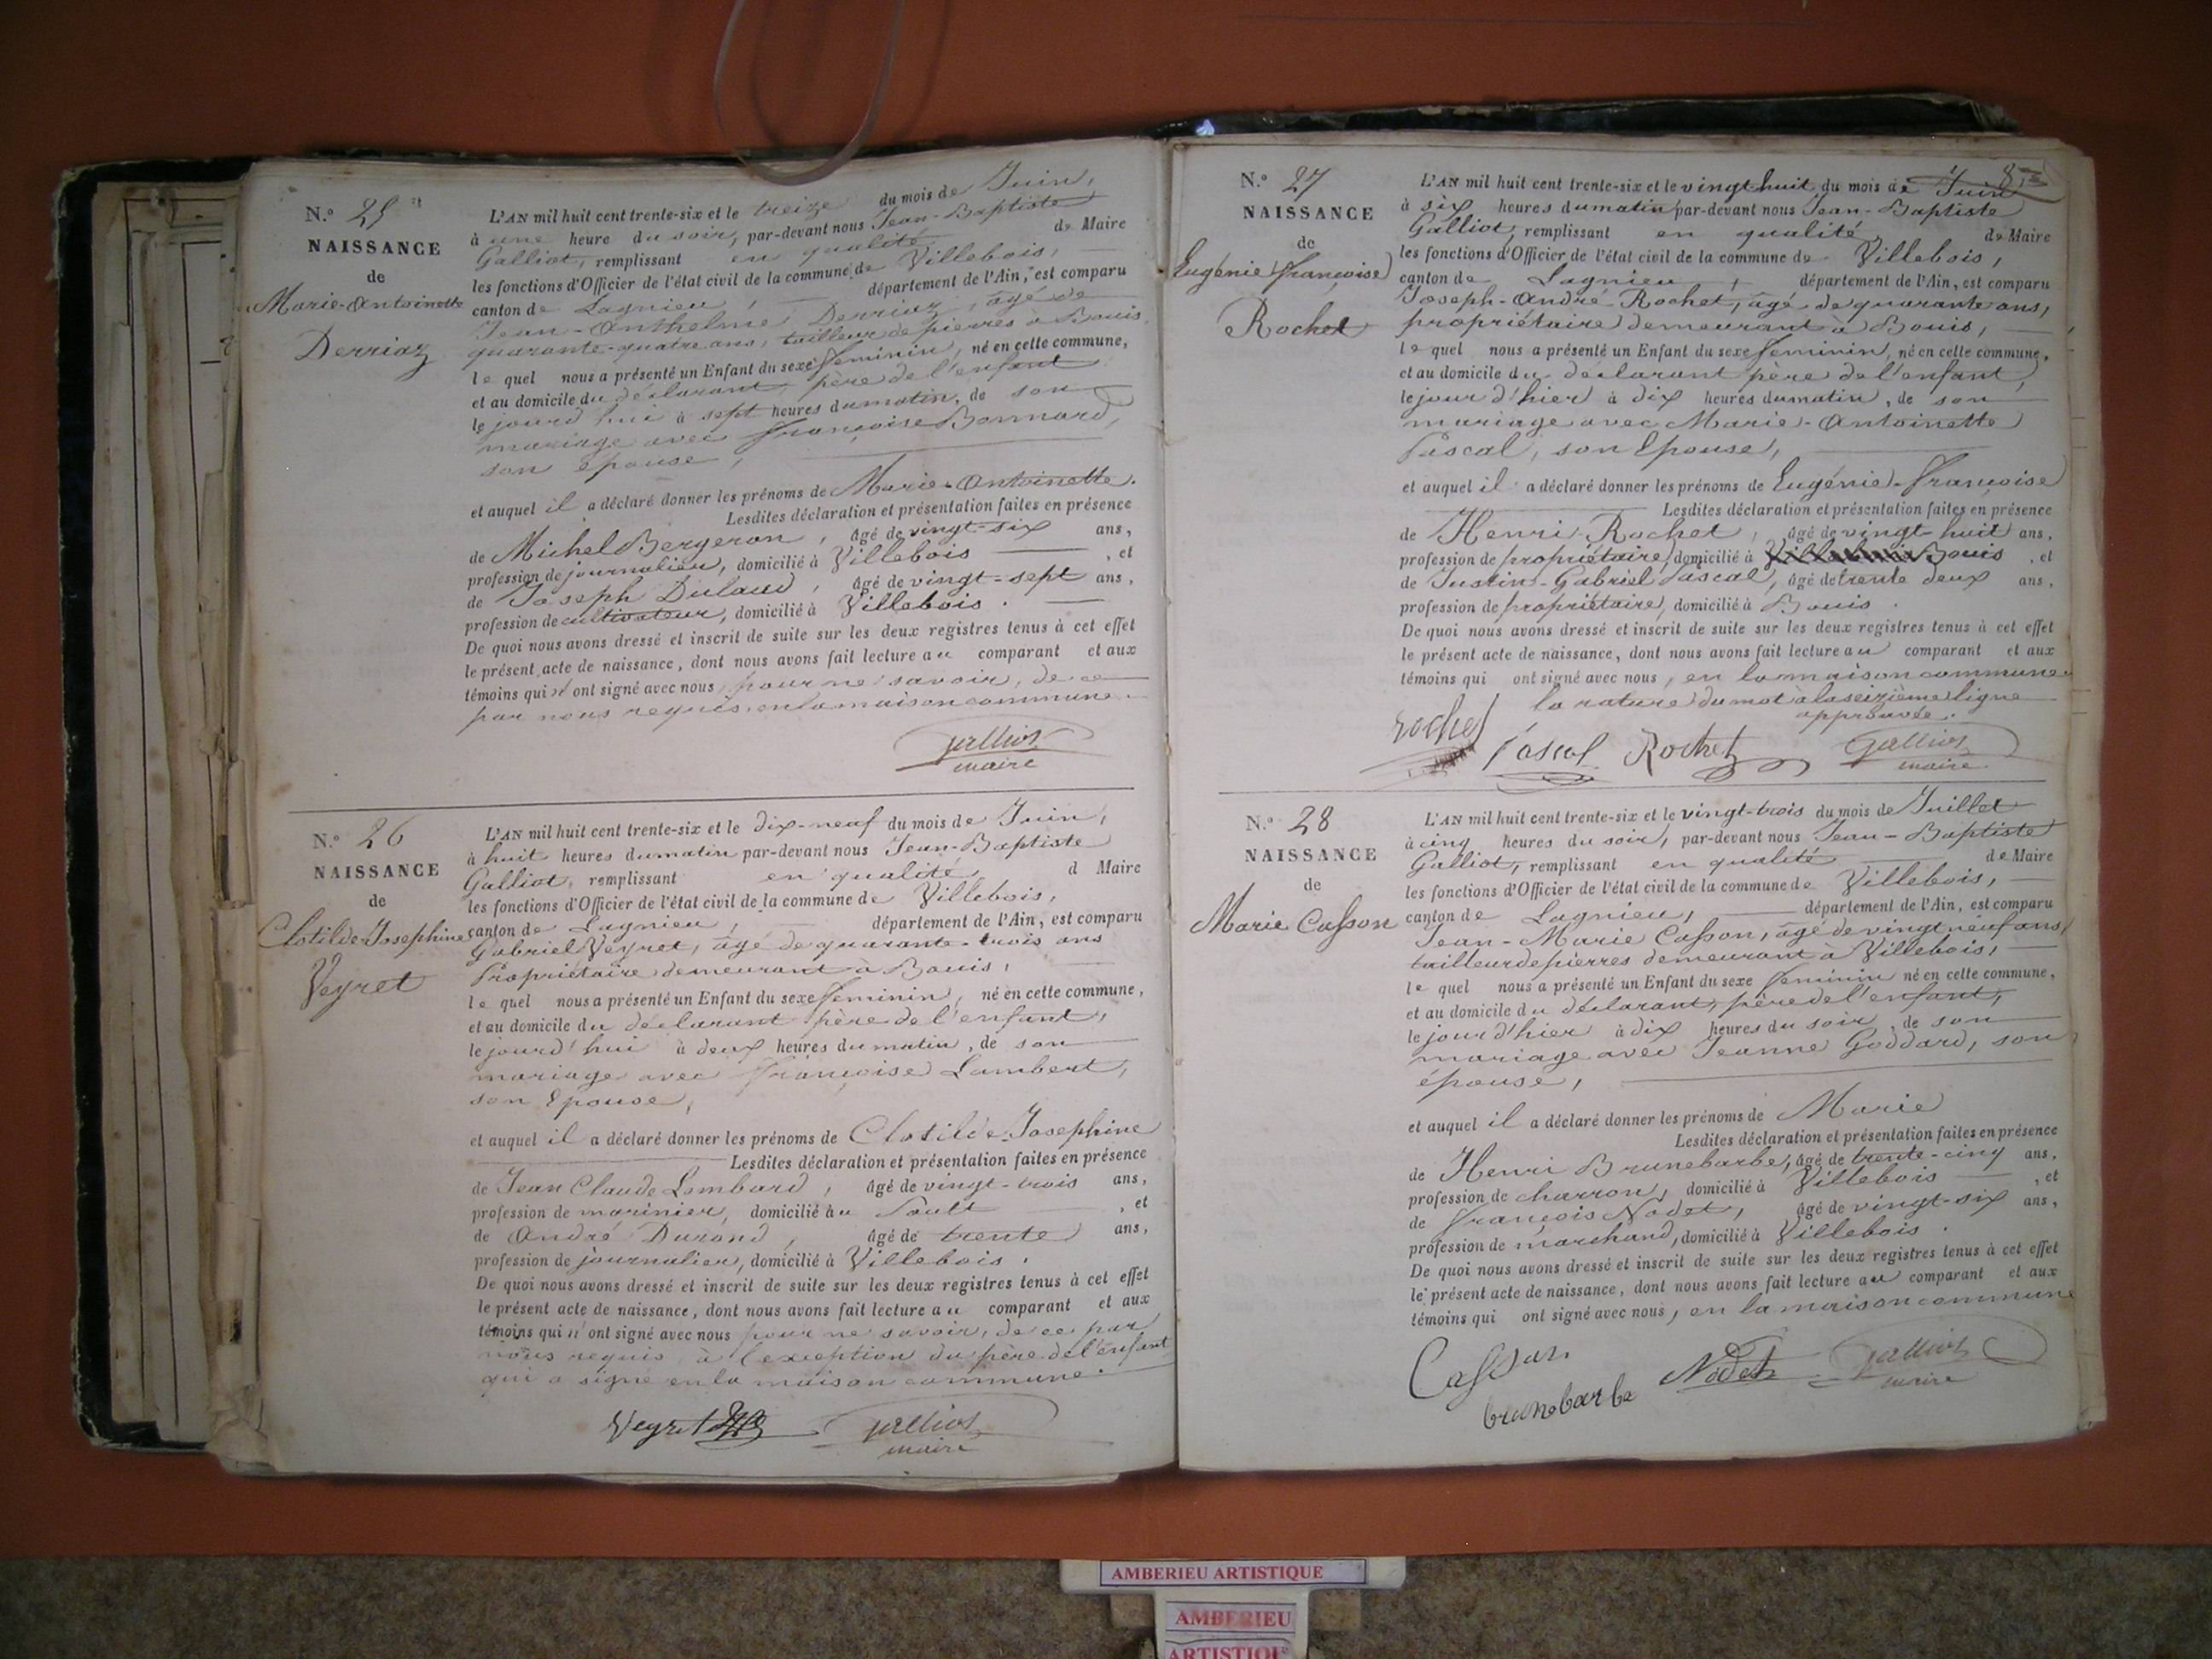 N.° 25
NAISSANCE
de
Marie-Antoinette
Derriaz
L'AN mil huit cent trente-six et le treize du mois de Juin,
à une heure du soir, par-devant nous Jean-Baptiste
Galliot, remplissant en qualité de Maire
les fonctions d'Officier de l'état civil de la commune de Villebois,
canton de Lagnieu, département de l'Ain, est comparu
Jean-Anthelme Derriaz, âgé de
quarante-quatre ans, tailleur de pierres à Bouis
le quel nous a présenté un Enfant du sexe feminin, né en cette commune,
et au domicile du déclarant, père de l'enfant
le jourd'hui à sept heures du matin, de son
mariage avec françoise Bonnard,
son épouse,
et auquel il a déclaré donner les prénoms de Marie-Antoinette.
Lesdites déclaration et présentation faites en présence
de Michel Bergeron, âgé de vingt-six ans,
profession de journalier, domicilié à Villebois, et
de Joseph Dulaud, âgé de vingt-sept ans,
profession de cultivateur, domicilié à Villebois.
De quoi nous avons dressé et inscrit de suite sur les deux registres tenus à cet effet
le présent acte de naissance, dont nous avons fait lecture au comparant et aux
témoins qui n'ont signé avec nous, pour ne savoir, de ce
par nous requis. en la maison commune.
Galliot
maire
N.° 26
NAISSANCE
de
Clotilde Josephine
Veyret
L'AN mil huit cent trente-six et le dix-neuf du mois de Juin,
à huit heures du matin par-devant nous Jean-Baptiste
Galliot, remplissant en qualité d Maire
les fonctions d'Officier de l'état civil de la commune de Villebois,
canton de Lagnieu, département de l'Ain, est comparu
Gabriel Veyret, âgé de quarante-trois ans
Propriétaire demeurant à Bouis,
le quel nous a présenté un Enfant du sexe feminin, né en cette commune,
et au domicile du déclarant père de l'enfant,
le jourd'hui à deux heures du matin, de son
mariage avec françoise Lambert,
son Epouse,
et auquel il a déclaré donner les prénoms de Clotilde-Josephine
Lesdites déclaration et présentation faites en présence
de Jean Claude Lombard, âgé de vingt-trois ans,
profession de marinier, domicilié au Sault, et
de André Durand, âgé de trente ans,
profession de journalier, domicilié à Villebois.
De quoi nous avons dressé et inscrit de suite sur les deux registres tenus à cet effet
le présent acte de naissance, dont nous avons fait lecture au comparant et aux
témoins qui n'ont signé avec nous pour ne savoir, de ce par
nous requis à l'exception du père de l'enfant
qui a signé en la maison commune.
Veyret
Galliot
maire
N.° 27
NAISSANCE
de
Eugénie françoise
Rochet
L'AN mil huit cent trente-six et le vingt huit du mois de Juin
à six heures du matin par-devant nous Jean-Baptiste
Galliot, remplissant en qualité de Maire
les fonctions d'Officier de l'état civil de la commune de Villebois,
canton de Lagnieu, département de l'Ain, est comparu
Joseph-André Rochet, âgé de quarante ans,
propriétaire demeurant à Bouis,
le quel nous a présenté un Enfant du sexe feminin, né en cette commune,
et au domicile du declarant père de l'enfant,
le jour d'hier à dix heures du matin, de son
mariage avec Marie-Antoinette
Pascal, son Epouse,
et auquel il a déclaré donner les prénoms de Eugénie-françoise
Lesdites déclaration et présentation faites en présence
de Henri Rochet, âgé de vingt-huit ans,
profession de propriétaire, domicilié à Villebois Bouis, et
de Justin-Gabriel Pascal, âgé de trente deux ans,
profession de propriétaire, domicilié à Bouis.
De quoi nous avons dressé et inscrit de suite sur les deux registres tenus à cet effet
le présent acte de naissance, dont nous avons fait lecture au comparant et aux
témoins qui ont signé avec nous, en la maison commune.
la rature du mot à la seizième ligne
approuvée.
rochet
Pascal Rochet Galliot
maire
N.° 28
NAISSANCE
de
Marie Casson
L'AN mil huit cent trente-six et le vingt-trois du mois de Juillet
à cinq heures du soir, par-devant nous Jean-Baptiste
Galliot, remplissant en qualité de Maire
les fonctions d'Officier de l'état civil de la commune de Villebois,
canton de Lagnieu, département de l'Ain, est comparu
Jean-Marie Casson, âgé de vingt neuf ans,
tailleur de pierres demeurant à Villebois,
le quel nous a présenté un Enfant du sexe feminin né en cette commune,
et au domicile du déclarant, père de l'enfant,
le jour d'hier à dix heures du soir, de son
mariage avec Jeanne Goddard, son
épouse,
et auquel il a déclaré donner les prénoms de Marie
Lesdites déclaration et présentation faites en présence
de Henri Brunebarbe, âgé de trente-cinq ans,
profession de charron, domicilié à Villebois, et
de françois Nodet, âgé de vingt-six ans,
profession de marchand, domicilié à Villebois.
De quoi nous avons dressé et inscrit de suite sur les deux registres tenus à cet effet
le présent acte de naissance, dont nous avons fait lecture au comparant et aux
témoins qui ont signé avec nous, en la maison commune
Casson
brunebarbe
Nodet
Galliot
maire
AMBERIEU ARTISTIQUE
AMBERIEU
ARTISTIQUE